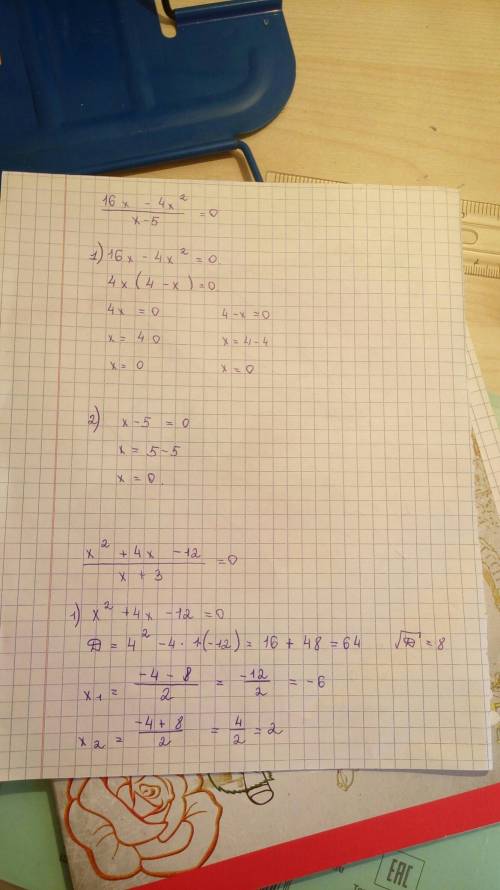 16x - 4x² / x-5 = 0
1) 16x - 4x² = 0.
4x (4 - x) = 0
4x = 0    4-x=0
x = 4 0    x = 4-4
x = 0    x = 0
2) x-5 = 0
x = 5-5
x = 0.
x² + 4x - 12 / x + 3 = 0
1) x² + 4x - 12 = 0
D = 4² - 4 · 1(-12) = 16 + 48 = 64    √D = 8
x₁ = -4 - 8 / 2 = -12 / 2 = -6
x₂ = -4 + 8 / 2 = 4 / 2 = 2
EAC